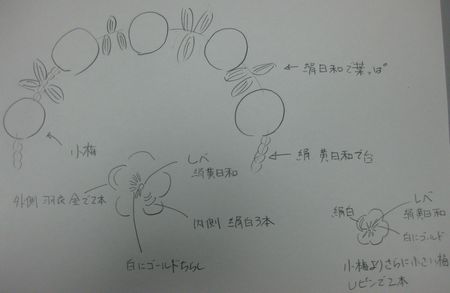 絹白和で葉っぱ
小梅
絹 黄白和で台
しべ
絹黄白和
外側 羽衣 金で2本
内側 絹白3本
白にゴールドちらし
絹白
しべ
絹黄白和
白にゴールド
小梅よりさらに小さい梅
Uピンで2本